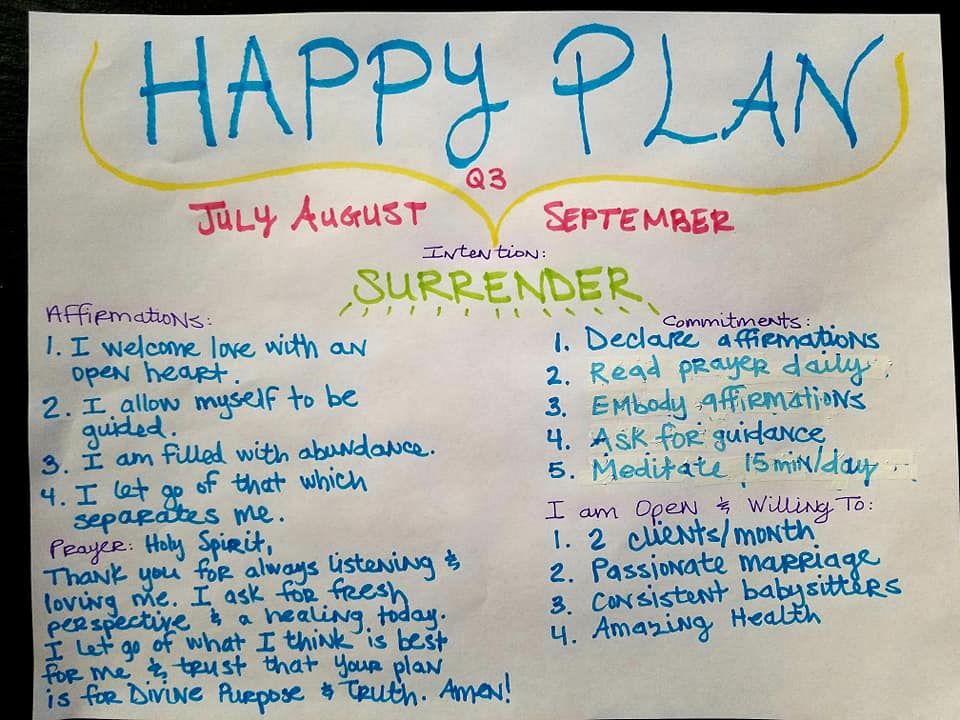 HAPPY PLAN
Q3
JULY AUGUST SEPTEMBER
Intention:
SURRENDER
Affirmations:
1. I welcome love with an
open heart.
2. I allow myself to be
guided.
3. I am filled with abundance.
4. I let go of that which
separates me.
Prayer: Holy Spirit,
Thank you for always listening &
loving me. I ask for fresh
perspective & a healing today.
I let go of what I think is best
for me & trust that your plan
is for Divine Purpose & Truth. Amen!
Commitments:
1. Declare affirmations
2. Read prayer daily
3. Embody affirmations
4. Ask for guidance
5. Meditate 15min/day
I am Open & Willing To:
1. 2 clients/month
2. Passionate marriage
3. Consistent babysitters
4. Amazing Health